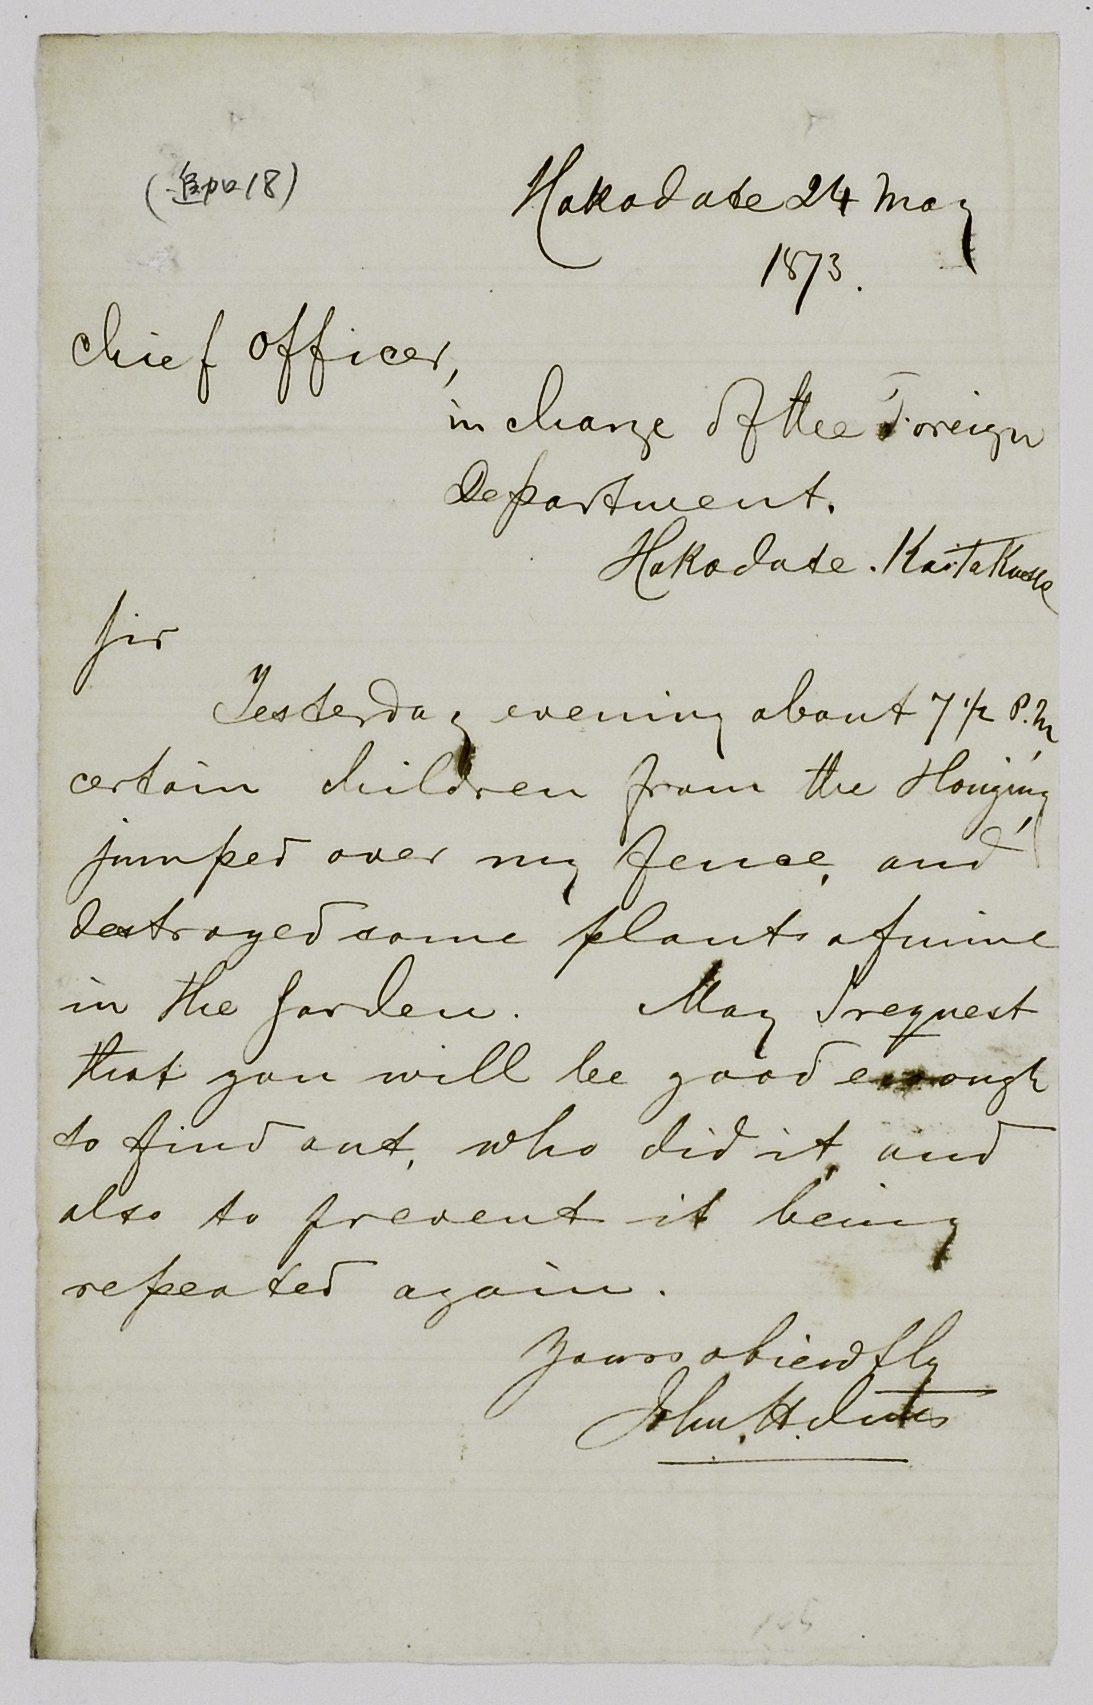 (追加18)
Hakodate 24 May
1873.
Chief Officer,
in charge of the Foreign
Department.
Hakodate. Kaitakusse
Sir
Yesterday evening about 7 1/2 P.M,
certain children from the
jumped over my fence, and
destroyed some plants of mine
in the garden. May I request
that you will be good enough
to find out, who did it, and
also to prevent it being
repeated again.
Yours obiendtly
John. H. Duus
165